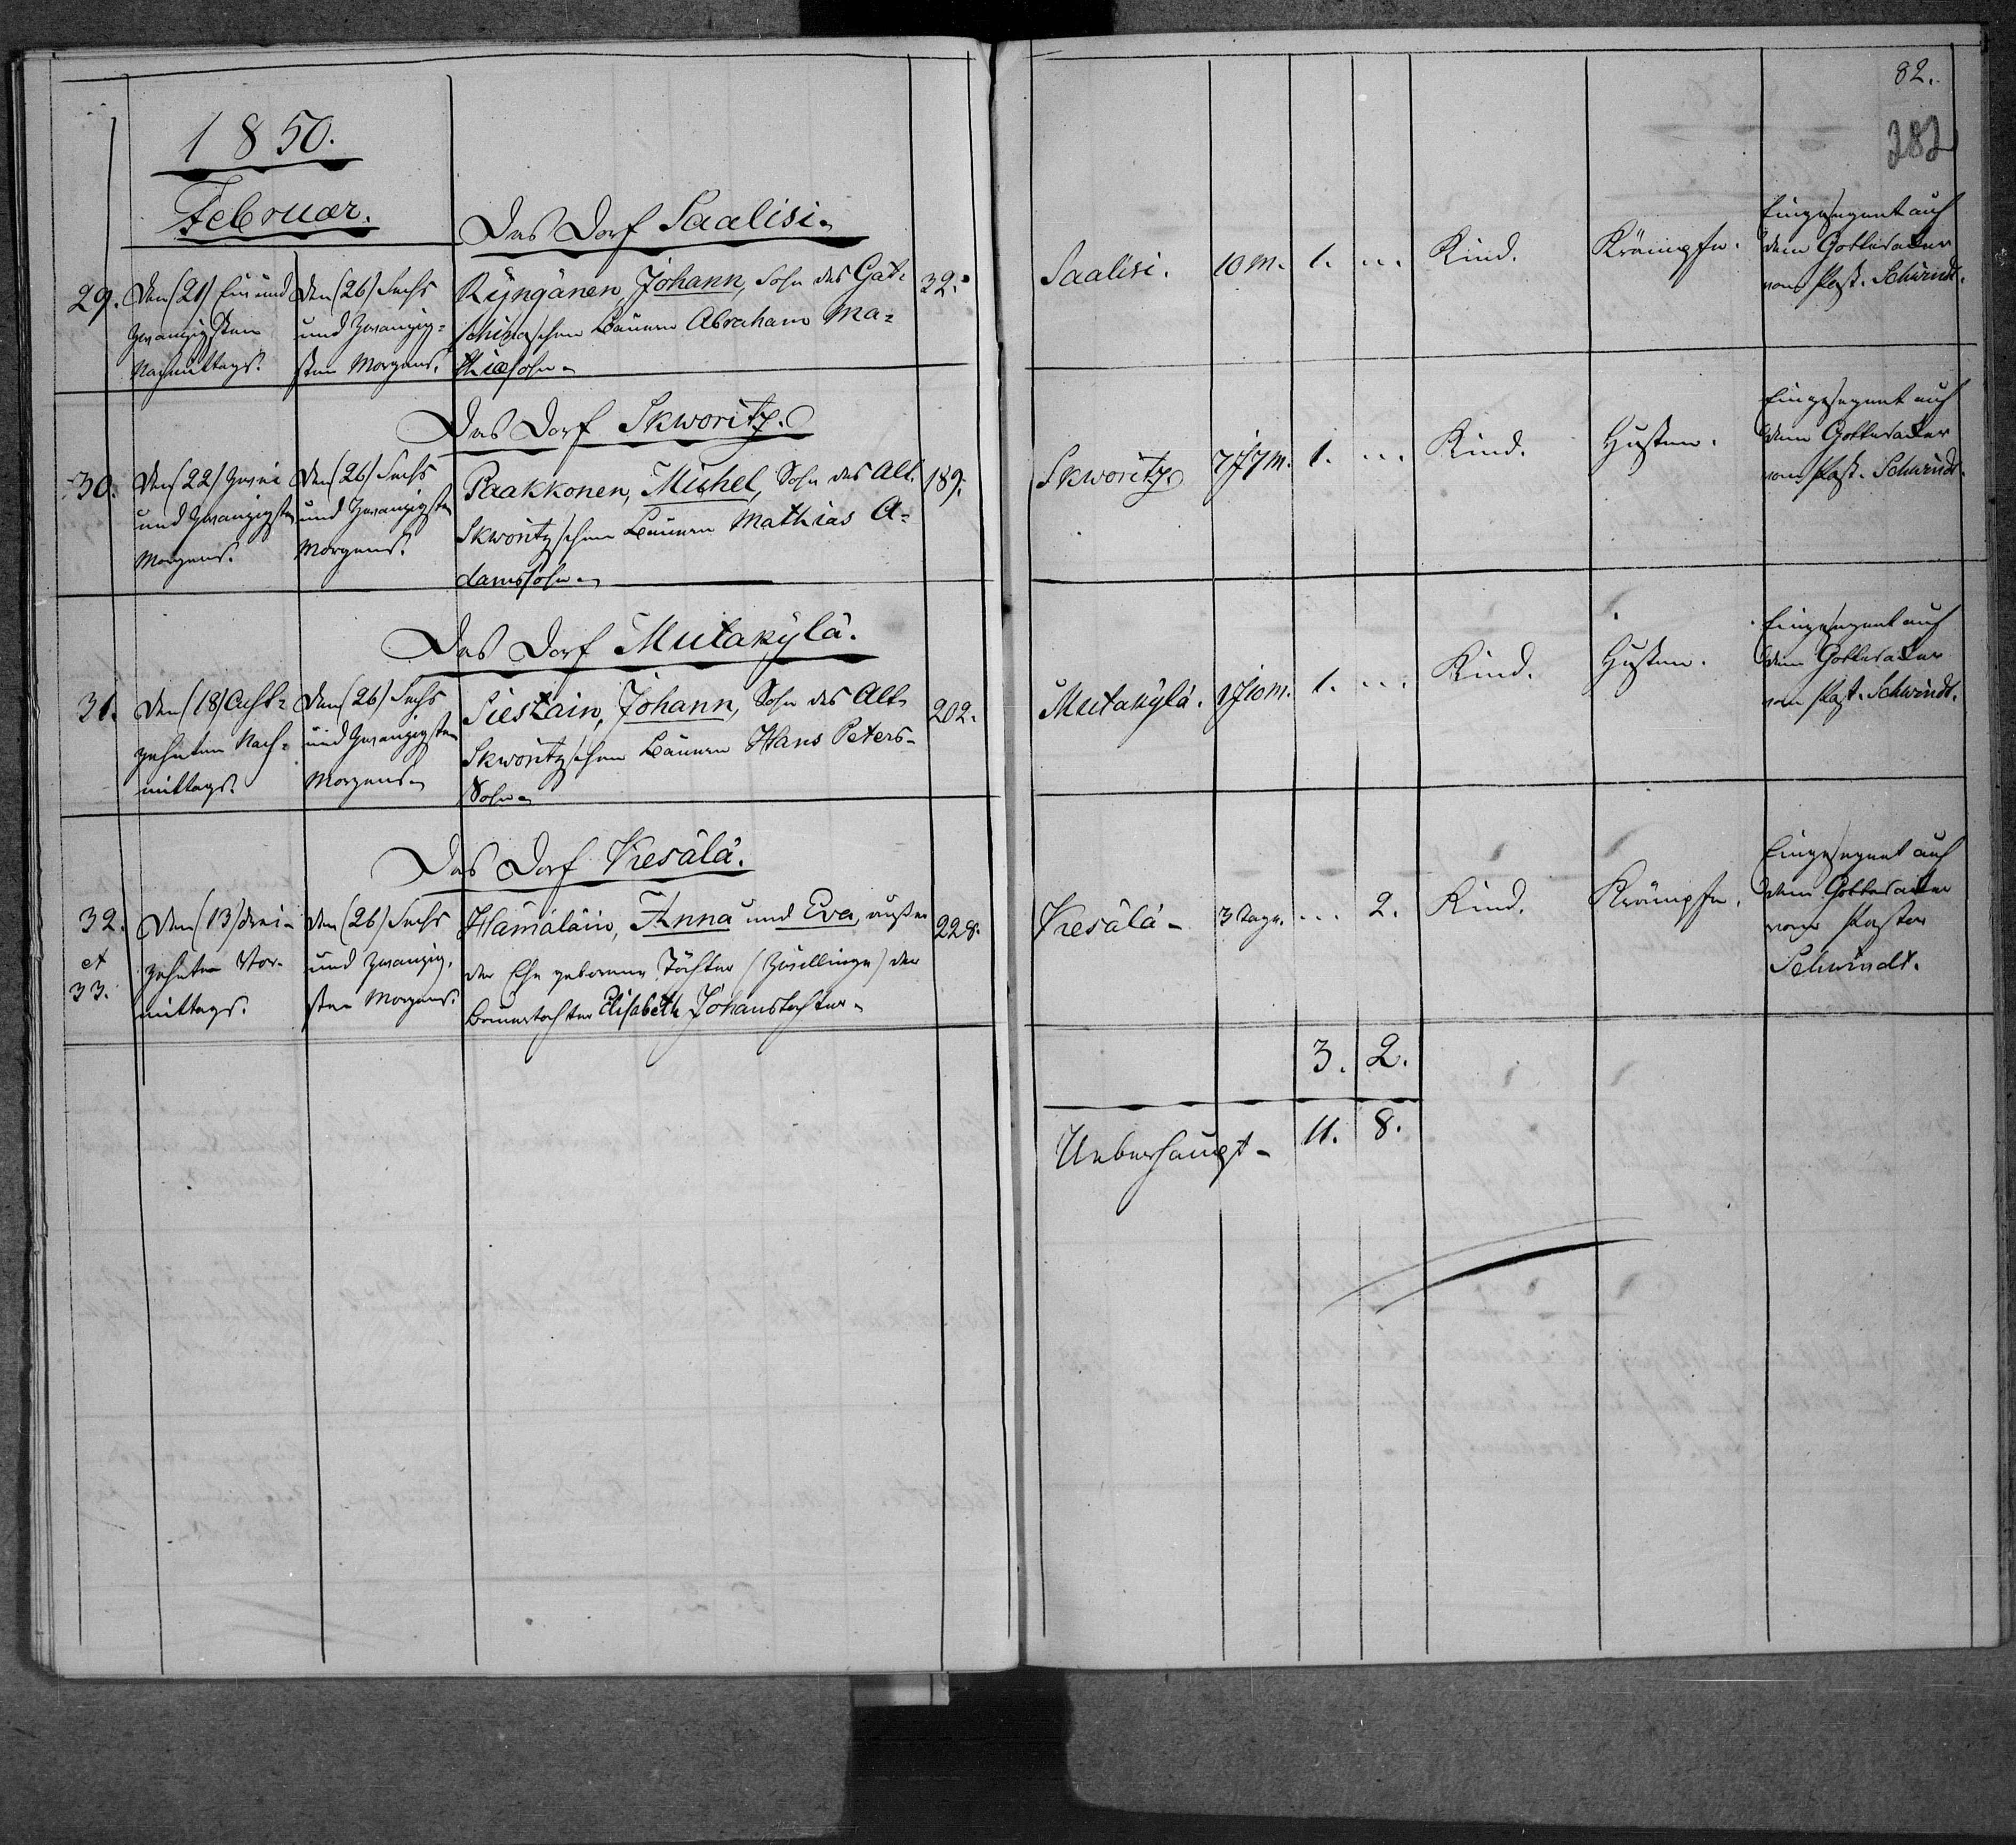 1850.
Februar.
Das Dorf Saalisi.
29. Den (21) Ein und
zwanzigsten
Nachmittags.
Den (26) Sechs
und zwanzig=
sten Morgens.
Ryngänen, Johann, Sohn des Gat=
schinaschen Bauern Abraham Ma=
thiassohn.
32.
Das Dorf Skworitz.
30. Den (22) Zwei
und zwanzigsten
Morgens.
Den (26) Sechs
und zwanzigsten
Morgens.
Paakkonen, Michel, Sohn des Alt.
Skworitzschen Bauern Mathias A=
damssohn.
189.
Das Dorf Mutakylä.
31. Den (18) Acht=
zehnten Nach=
mittags.
Den (26) Sechs
und zwanzigsten
Morgens.
Siestain, Johann, Sohn des Alt.
Skworitzschen Bauern Hans Peters-
Sohn.
202.
Das Dorf Kesälä.
32.
et
33.
Den (13) drei-
zehnten Vor-
mittags.
Den (26) Sechs
und zwanzig-
sten Morgens.
Hämäläin, Anna und Eva, außer
der Ehe geborene Töchter (Zwillinge) der
Bauertochter Elisabeth Johanstochter.
228.
82.
282
Saalisi. 10 m. 1. ... Kind. Krämpfe.
Eingesegnet auf
dem Gottesacker
vom Past. Schwindt.
Skworitz. 7 J 7 m. 1. ... Kind. Husten.
Eingesegnet auf
dem Gottesacker
vom Past. Schwindt.
Mutakylä. 1 J 10 m. 1. ... Kind. Husten.
Eingesegnet auf
dem Gottesacker
vom Past. Schwindt.
Kesälä. 3 Tage. ... 2. Kind. Krämpfe.
Eingesegnet auf
dem Gottesacker
vom Pastor
Schwindt.
3. 2.
Ueberhaupt. 11. 8.